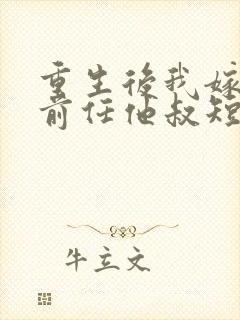 重生後我嫁
前任他叔短
牛立文